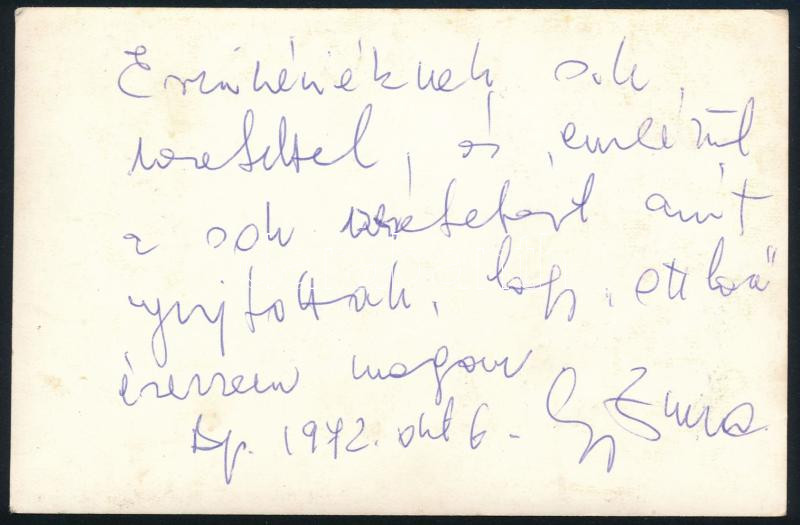 sok
szeretettel, és emlékül
a sok szeretetért amit
nyujtottak, hogy "otthon"
érezzem magam
Bp. 1972. okt 6.